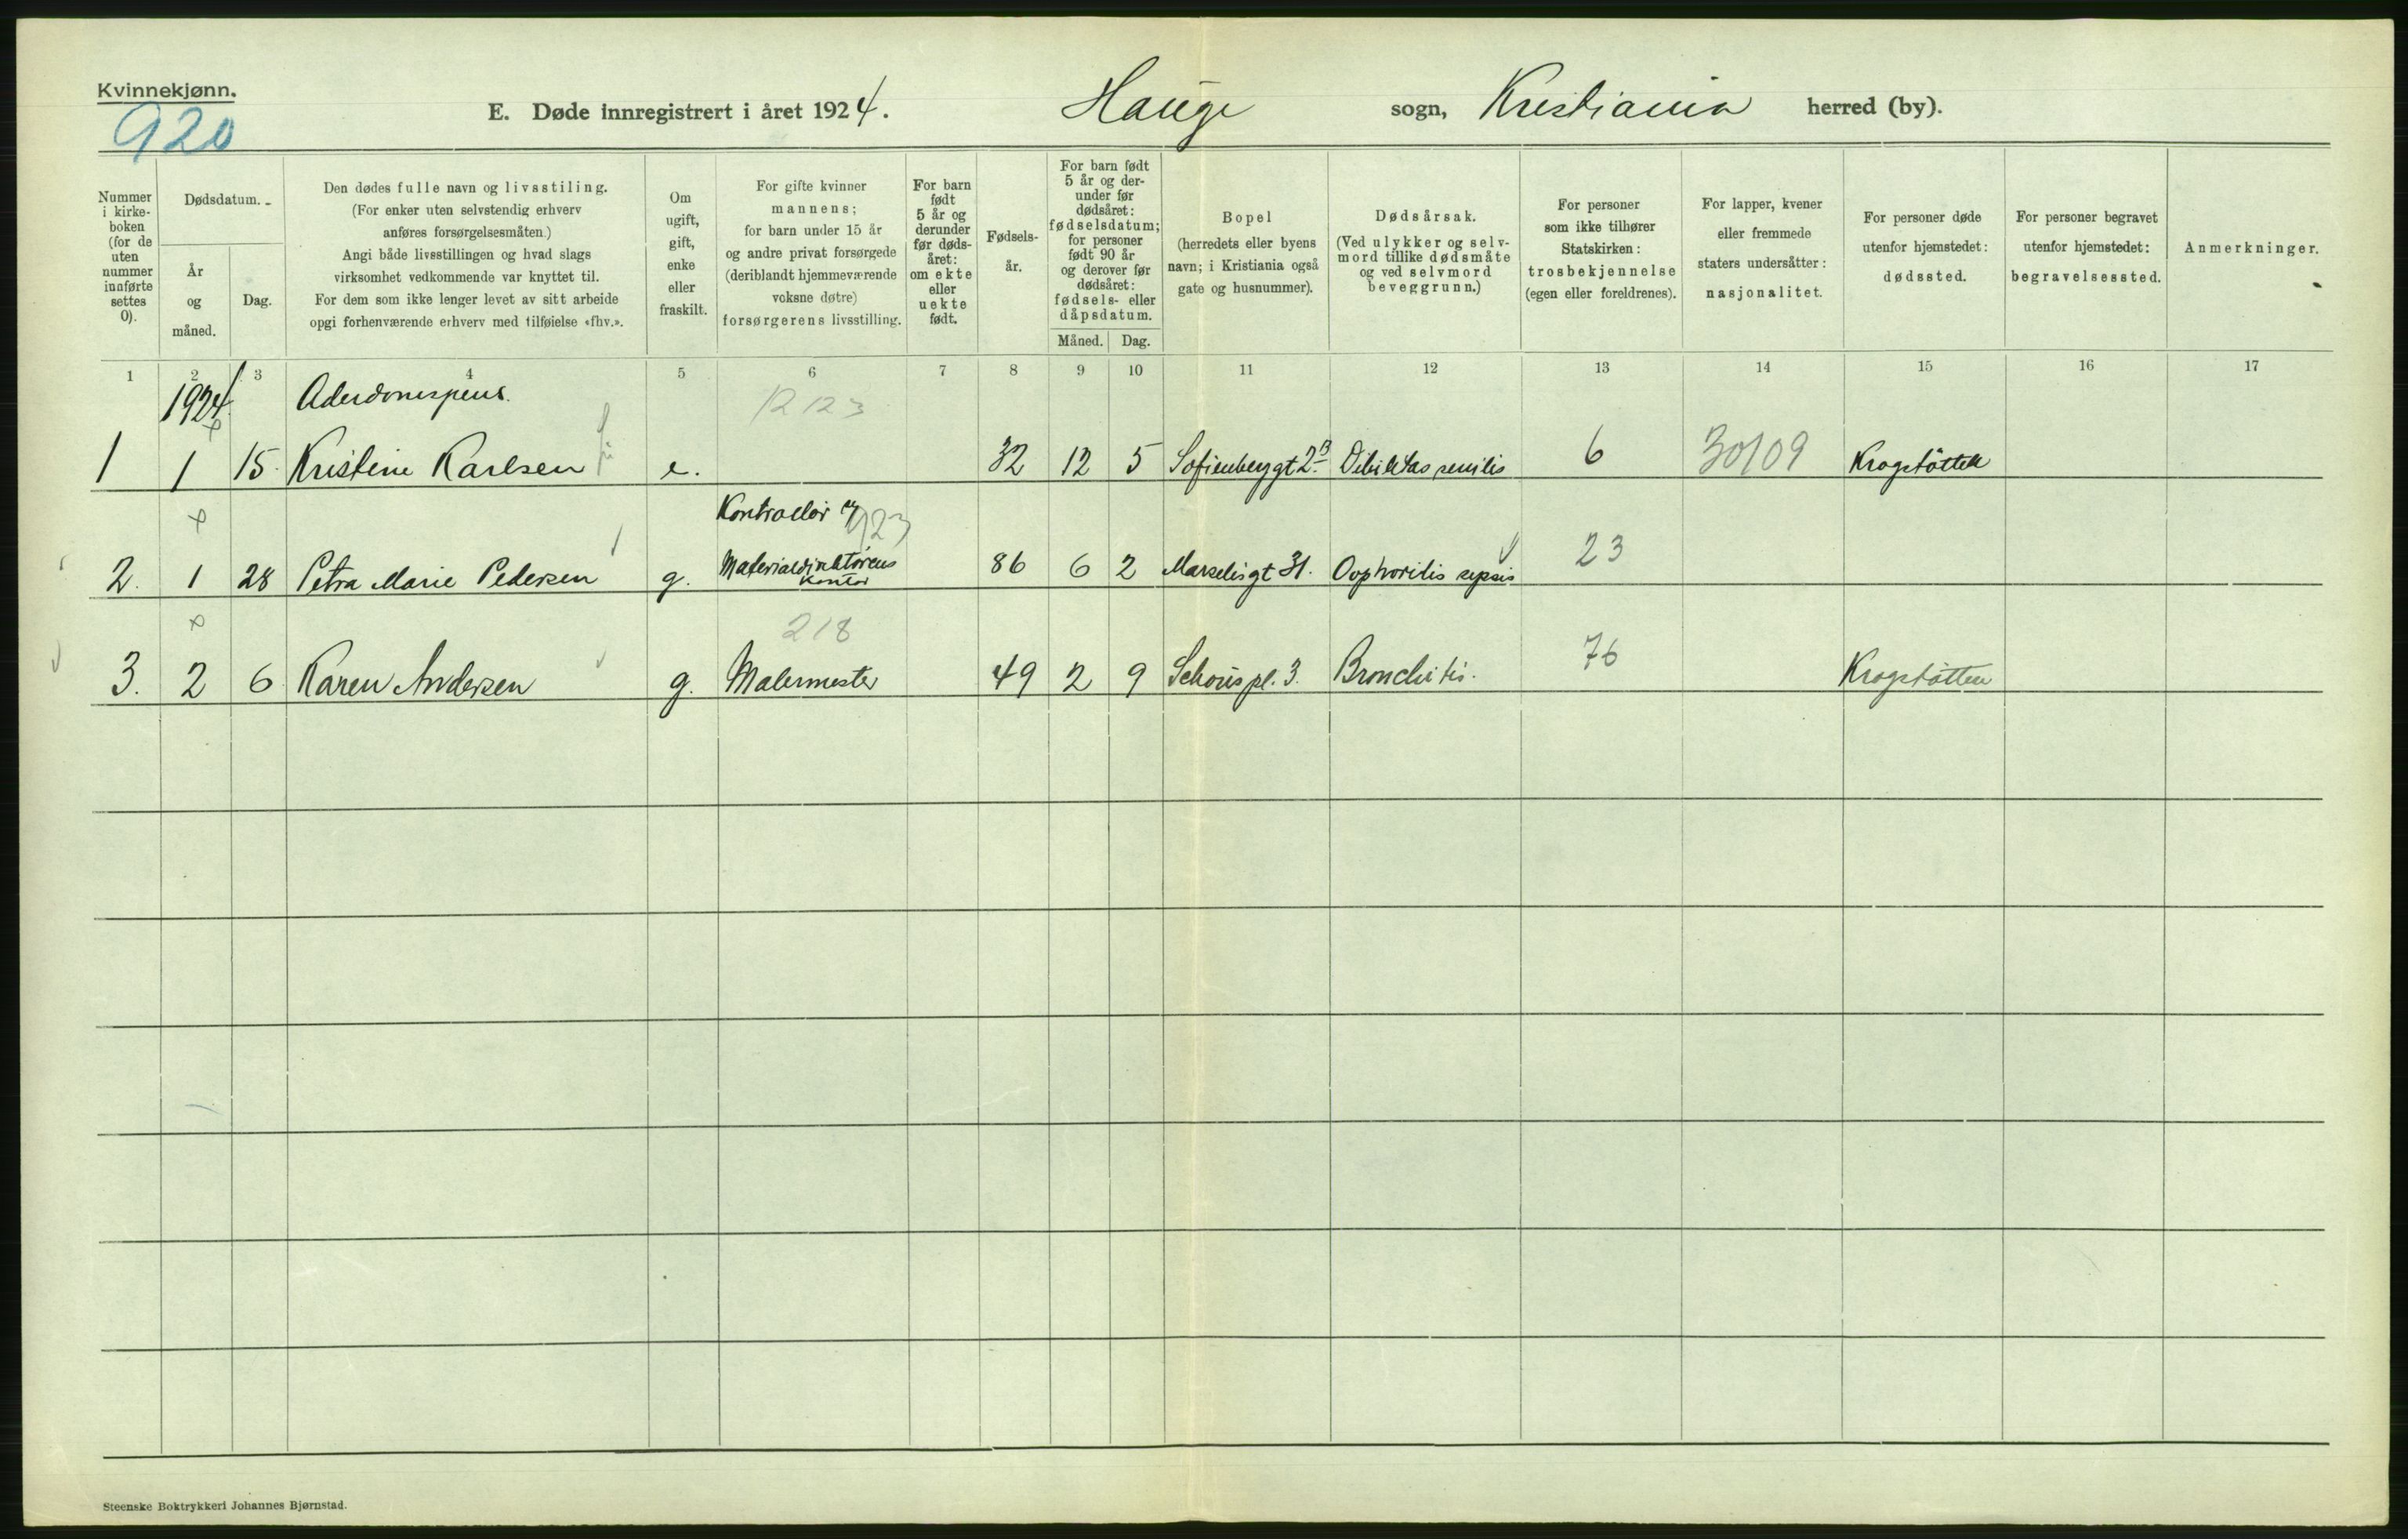 Kvinnekjønn.
920
E. Døde innregistrert i året 1924. Hauge sogn, Kristiania herred (by).
Nummer i kirke-boken (for de uten nummer innførte settes 0).
Dødsdatum.
År og måned.
Dag.
Den dødes fulle navn og livsstiling.
(For enker uten selvstendig erhverv
anføres forsørgelsesmåten.)
Angi både livsstillingen og hvad slags
virksomhet vedkommende var knyttet til.
For dem som ikke lenger levet av sitt arbeide
opgi forhenværende erhverv med tilføielse «fhv.».
Om
ugift,
gift,
enke
eller
fraskilt.
For gifte kvinner
mannens;
for barn under 15 år
og andre privat forsørgede
(deriblandt hjemmeværende
voksne døtre)
forsørgerens livsstilling.
For barn
født
5 år og
derunder
før døds-
året:
om ekte
eller
uekte
født.
Fødsels-
år.
For barn født
5 år og der-
under før
dødsåret:
fødselsdatum;
for personer
født 90 år
og derover før
dødsåret:
fødsels- eller
dåpsdatum.
Måned. Dag.
Bopel
(herredets eller byens
navn; i Kristiania også
gate og husnummer).
Dødsårsak.
(Ved ulykker og selv-
mord tillike dødsmåte
og ved selvmord
beveggrunn.)
For personer
som ikke tilhører
Statskirken:
trosbekjennelse
(egen eller foreldrenes).
For lapper, kvener
eller fremmede
staters undersåtter:
nasjonalitet.
For personer døde
utenfor hjemstedet:
dødssted.
For personer begravet
utenfor hjemstedet:
begravelsessted.
Anmerkninger.
1 2 3 4 5 6 7 8 9 10 11 12 13 14 15 16 17
1924. Alderdomspens. 12 12 3
1 1 15. Kristine Karlsen e. 32 12 5 Sofienberggt 2B Debilitas senilis 6 30/09 Krogstøtten
Kontrollør
923
2. 1 28 Petra Marie Pedersen g. Materialdirektørens 86 6 2 Marselisgt 31. Oophoritis sepsis 23
Kontor
218
3. 2 6 Karen Andersen g. Malermester 49 2 9 Schous pl. 3. Bronchitis. 76 Krogstøtten
Steenske Boktrykkeri Johannes Bjørnstad.